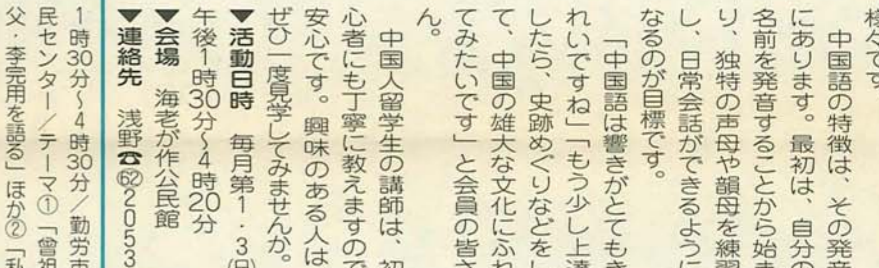 様々です
中国語の特徴は、その発音
にあります。最初は、自分の
名前を発音することから始ま
り、独特の声母や韻母を練習
し、日常会話ができるように
なるのが目標です。
「中国語は響きがとてもき
れいですね」「もう少し上達
したら、史跡めぐりなどをし
て、中国の雄大な文化にふれ
てみたいです」と会員の皆さ
ん。
中国人留学生の講師は、初
心者にも丁寧に教えますので
安心です。興味のある人は
ぜひ一度見学してみませんか。
▼活動日時 毎月第1・3(日)
午後1時30分〜4時20分
▼会場 海老が作公民館
▼連絡先 浅野☎㉒2053
1時30分〜4時30分/勤労市
民センター/テーマ①「曾祖
父・李完用を語る」ほか②「私